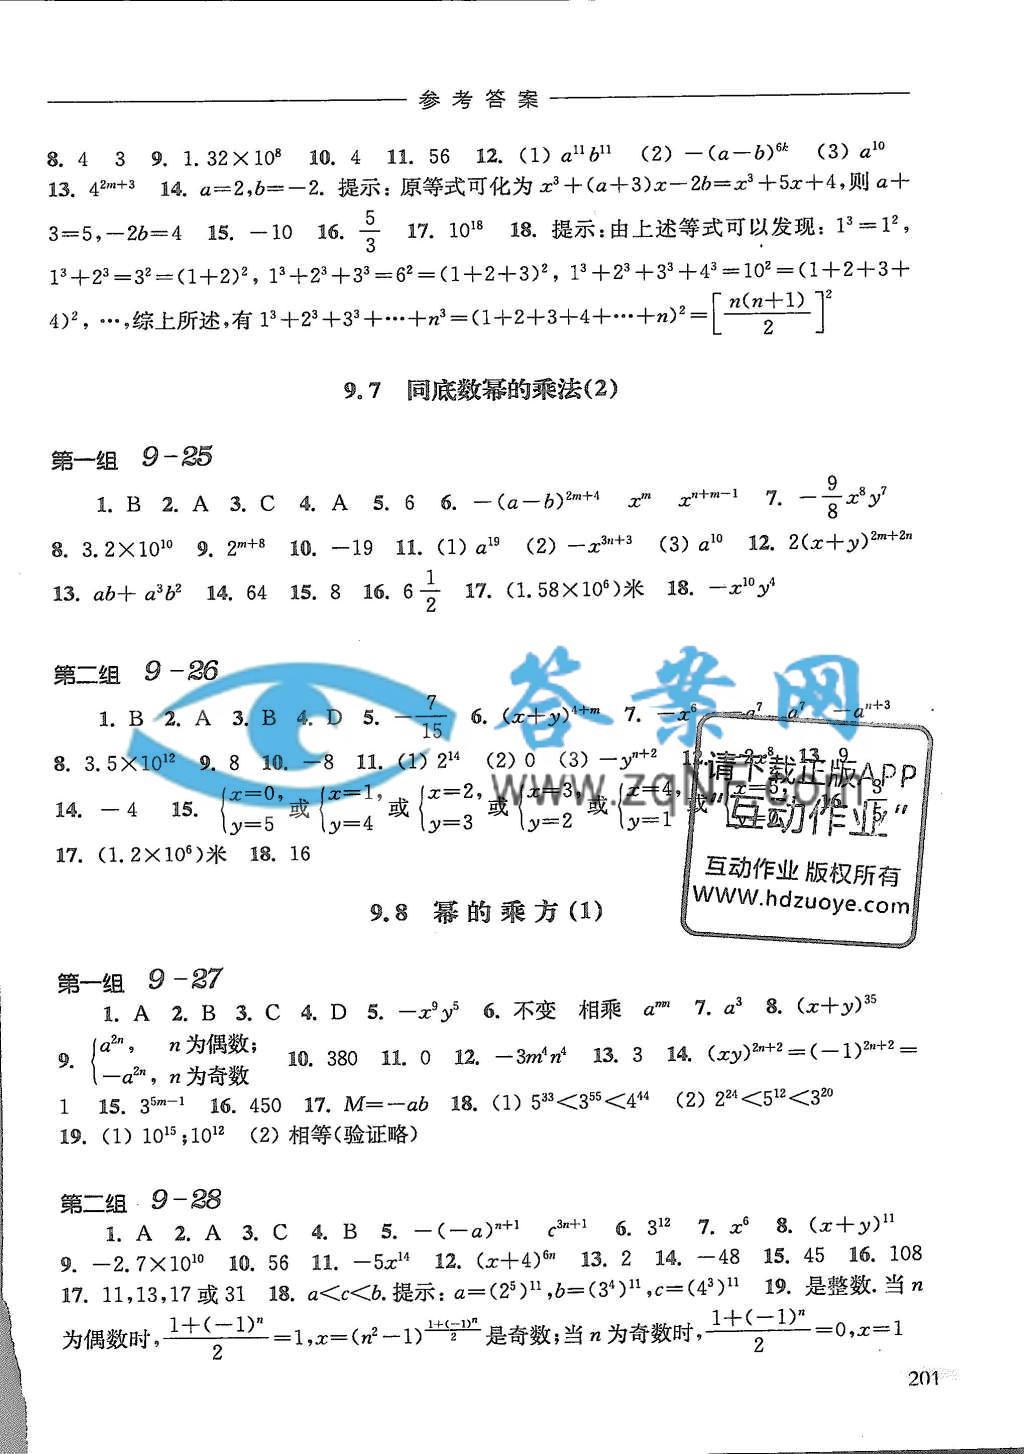 参考答案
8. 4 3 9. 1.32×10⁸ 10. 4 11. 56 12. (1) a¹¹b¹¹ (2) －(a－b)⁶ᵏ (3) a¹⁰
13. 4²ᵐ⁺³ 14. a=2,b=－2. 提示:原等式可化为 x³+(a+3)x－2b=x³+5x+4,则 a+
3=5,－2b=4 15. －10 16. 5/3 17. 10¹⁸ 18. 提示:由上述等式可以发现: 1³=1²,
1³+2³=3²=(1+2)², 1³+2³+3³=6²=(1+2+3)², 1³+2³+3³+4³=10²=(1+2+3+
4)², …,综上所述,有 1³+2³+3³+…+n³=(1+2+3+4+…+n)²=[n(n+1)/2]²
9.7 同底数幂的乘法(2)
第一组 9-25
1. B 2. A 3. C 4. A 5. 6 6. －(a－b)²ᵐ⁺⁴ xᵐ xⁿ⁺ᵐ⁻¹ 7. －9/8 x⁸y⁷
8. 3.2×10¹⁰ 9. 2ᵐ⁺⁸ 10. －19 11. (1) a¹⁹ (2) －x³ⁿ⁺³ (3) a¹⁰ 12. 2(x+y)²ᵐ⁺²ⁿ
13. ab+a³b² 14. 64 15. 8 16. 6 1/2 17. (1.58×10⁶)米 18. －x¹⁰y⁴
第二组 9-26
1. B 2. A 3. B 4. D 5. －7/15 6. (x+y)⁴⁺ᵐ 7. －x⁶ －a⁷ a⁷ －aⁿ⁺³
8. 3.5×10¹² 9. 8 10. －8 11. (1) 2¹⁴ (2) 0 (3) －yⁿ⁺² 13. 9
14. －4 15. {x=0, y=5 或 {x=1, y=4 或 {x=2, y=3 或 {x=3, y=2 或 {x=4, y=1 或 {x=5, y=0 16.
17. (1.2×10⁶)米 18. 16
答案网
www.zqNF.com
请下载正版APP
“互动作业”
互动作业 版权所有
www.hdzuoye.com
9.8 幂的乘方(1)
第一组 9-27
1. A 2. B 3. C 4. D 5. －x⁹y⁵ 6. 不变 相乘 aᵐⁿ 7. a³ 8. (x+y)³⁵
9. {a²ⁿ, n为偶数; －a²ⁿ, n为奇数 10. 380 11. 0 12. －3m⁴n⁴ 13. 3 14. (xy)²ⁿ⁺²=(－1)²ⁿ⁺²=
1 15. 3⁵ᵐ⁻¹ 16. 450 17. M=－ab 18. (1) 5³³<3⁵⁵<4⁴⁴ (2) 2²⁴<5¹²<3²⁰
19. (1) 10¹⁵;10¹² (2) 相等(验证略)
第二组 9-28
1. A 2. A 3. C 4. B 5. －(－a)ⁿ⁺¹ c³ⁿ⁺¹ 6. 3¹² 7. x⁶ 8. (x+y)¹¹
9. －2.7×10¹⁰ 10. 56 11. －5x¹⁴ 12. (x+4)⁶ⁿ 13. 2 14. －48 15. 45 16. 108
17. 11,13,17或31 18. a<c<b.提示: a=(2⁵)¹¹,b=(3⁴)¹¹,c=(4³)¹¹ 19. 是整数.当 n
为偶数时, (1+(－1)ⁿ)/2=1,x=(n²－1)^((1+(－1)ⁿ)/2) 是奇数;当 n 为奇数时, (1+(－1)ⁿ)/2=0,x=1
201